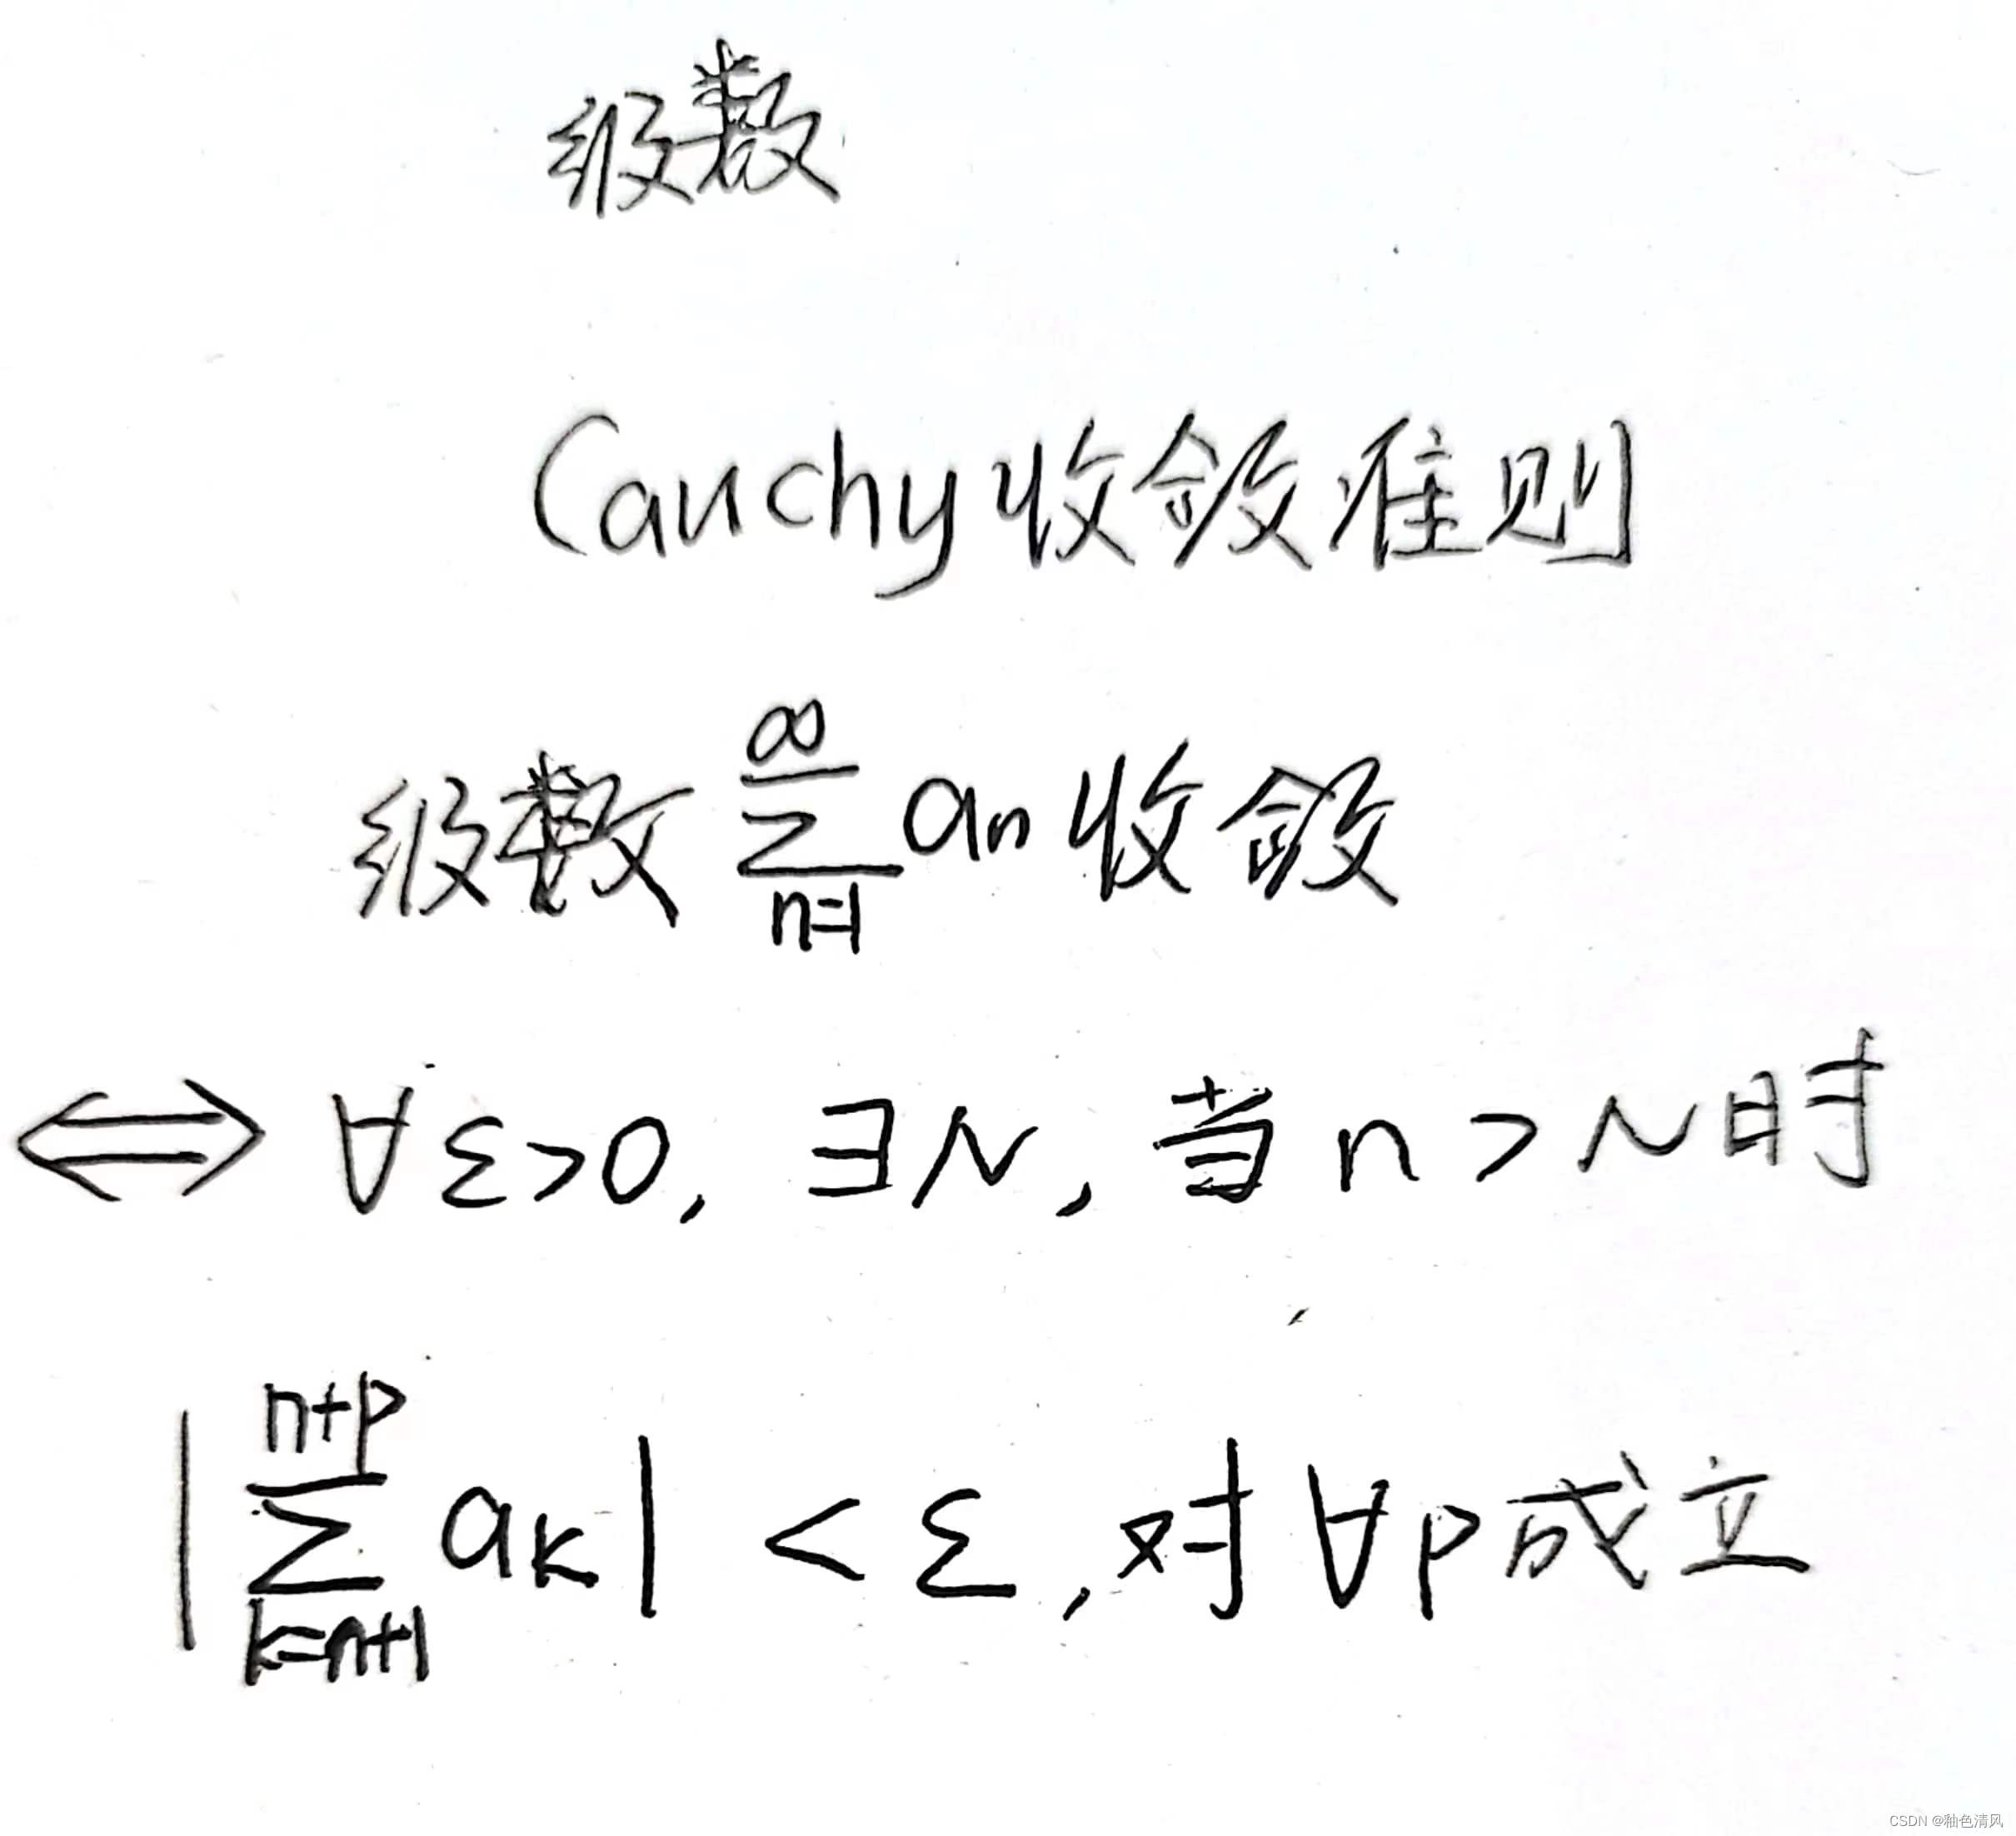 级数
Cauchy收敛准则
级数 $\sum_{n=1}^{\infty} a_n$ 收敛
⟺ ∀ε>0, ∃N, 当 n > N时
$\left|\sum_{k=n+1}^{n+p} a_k\right| < ε$, 对∀p成立
CSDN @釉色清风